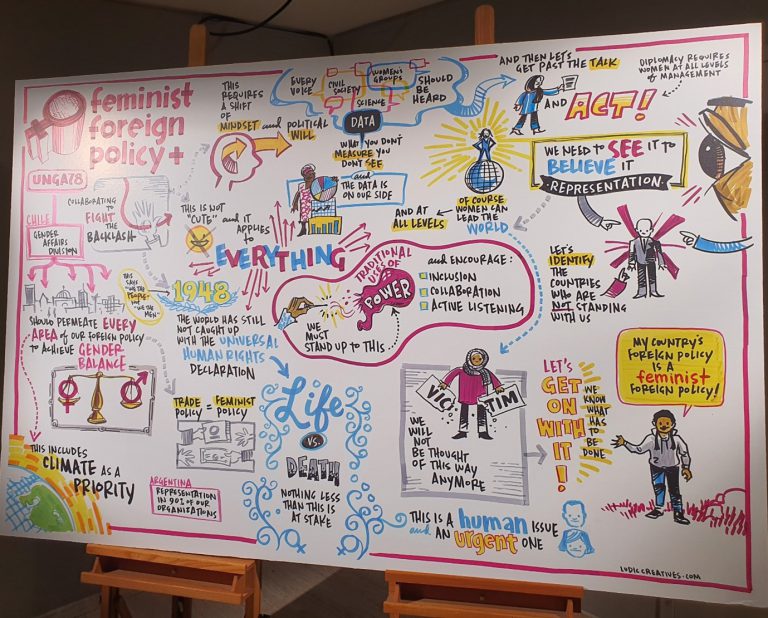 feminist
foreign
policy +
UNGA78
THIS
REQUIRES
A SHIFT
OF
MINDSET and POLITICAL
WILL
EVERY
VOICE
CIVIL
SOCIETY
WOMEN'S
GROUPS
SCIENCE
SHOULD
BE
HEARD
DATA
WHAT YOU DON'T
MEASURE YOU
DON'T SEE
and
THE DATA IS
ON OUR SIDE
AND THEN LET'S
GET PAST THE TALK
AND ACT!
DIPLOMACY REQUIRES
WOMEN AT ALL LEVELS
of MANAGEMENT
WE NEED TO SEE IT TO
BELIEVE IT
REPRESENTATION
OF COURSE
WOMEN CAN
LEAD THE
WORLD
AND AT
ALL LEVELS
COLLABORATING
to FIGHT
THE
BACKLASH
THIS IS NOT
"CUTE" and IT
APPLIES
to
EVERYTHING
CHILE
GENDER
AFFAIRS
DIVISION
SHOULD PERMEATE EVERY
AREA OF OUR FOREIGN POLICY
to ACHIEVE GENDER
BALANCE
THIS
SAYS
"WE THE
PEOPLE"
NOT
"WE THE
MEN"
1948
THE WORLD HAS STILL
NOT CAUGHT UP
WITH THE UNIVERSAL
HUMAN RIGHTS
DECLARATION
TRADITIONAL
USES OF
POWER
WE
MUST
STAND UP TO THIS
and ENCOURAGE:
INCLUSION
COLLABORATION
ACTIVE LISTENING
LET'S
IDENTIFY
THE
COUNTRIES
WHO ARE
NOT STANDING
WITH US
TRADE = FEMINIST
POLICY POLICY
Life
VS.
DEATH
NOTHING LESS
THAN THIS IS
AT STAKE
VIC TIM
WE
WILL
NOT
BE THOUGHT
OF THIS WAY
ANYMORE
LET'S
GET
ON
WITH
IT!
WE
KNOW
WHAT
HAS
TO
BE
DONE
MY COUNTRY'S
FOREIGN POLICY
IS A
feminist
FOREIGN POLICY!
THIS INCLUDES
CLIMATE AS A
PRIORITY
ARGENTINA
REPRESENTATION
IN 90% OF OUR
ORGANIZATIONS
THIS IS A human ISSUE
and AN urgent ONE
LUDICCREATIVES.COM